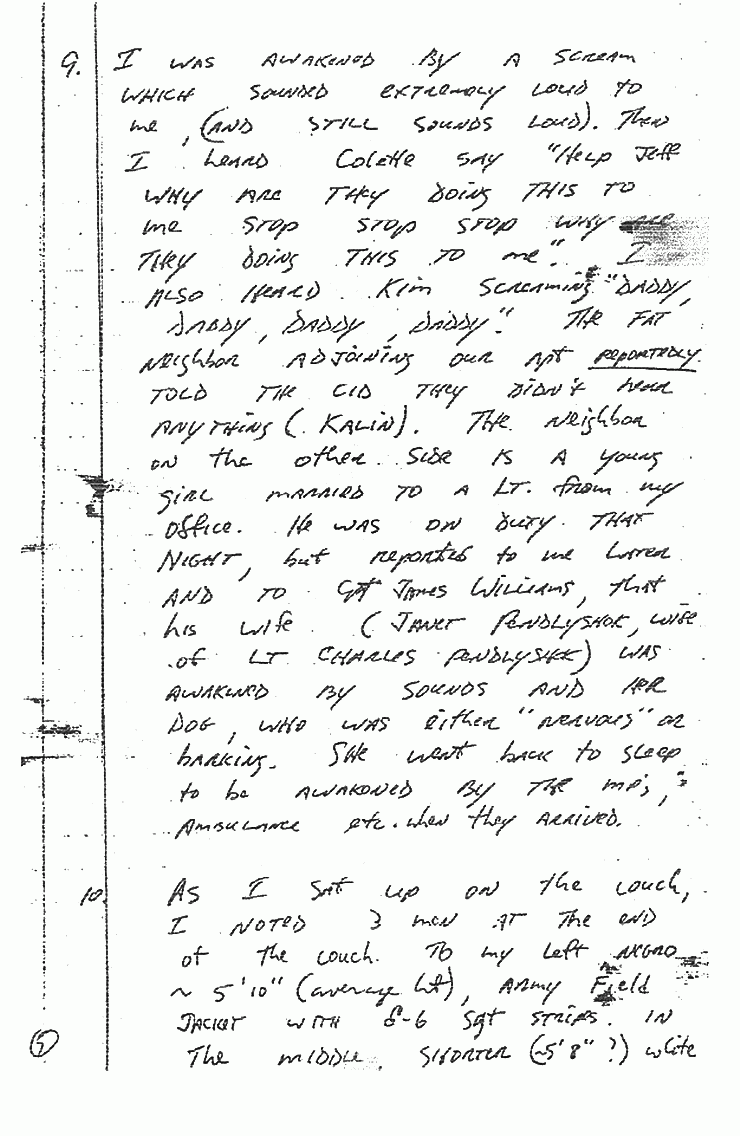 9. I WAS AWAKENED BY A SCREAM
WHICH SOUNDED EXTREMELY LOUD TO
me, (AND STILL SOUNDS LOUD). Then
I heard Colette SAY "Help Jeff
WHY ARE THEY DOING THIS TO
me STOP STOP STOP WHY are
THEY DOING THIS TO me". I
ALSO HEARD Kim SCREAMING "DADDY,
DADDY, DADDY, DADDY". THE FAT
Neighbor ADJOINING our Apt REPORTEDLY
TOLD THE CID THEY DIDN'T hear
ANYTHING (KALIN). THE Neighbor
on the other side IS A young
girl MARRIED TO A LT. from my
office. He WAS ON DUTY THAT
NIGHT, but reported to me LATER
AND TO Cpt JAMES WILLIAMS, that
his wife (JANET PENDLYSHOK, wife
of LT CHARLES PENDLYSHOK) WAS
AWAKENED BY SOUNDS AND HER
DOG, WHO WAS either "nervous" or
barking. She went back to sleep
to be AWAKENED BY THE MP's,
AMBULANCE etc. when they ARRIVED.
10. As I SAT up on the couch,
I NOTED 3 men AT The END
of the couch. To my left NEGRO
~ 5'10" (average ht), ARMY Field
JACKET WITH E-6 Sgt STRIPS. IN
The MIDDLE, SHORTER (~5'8"?) white
5